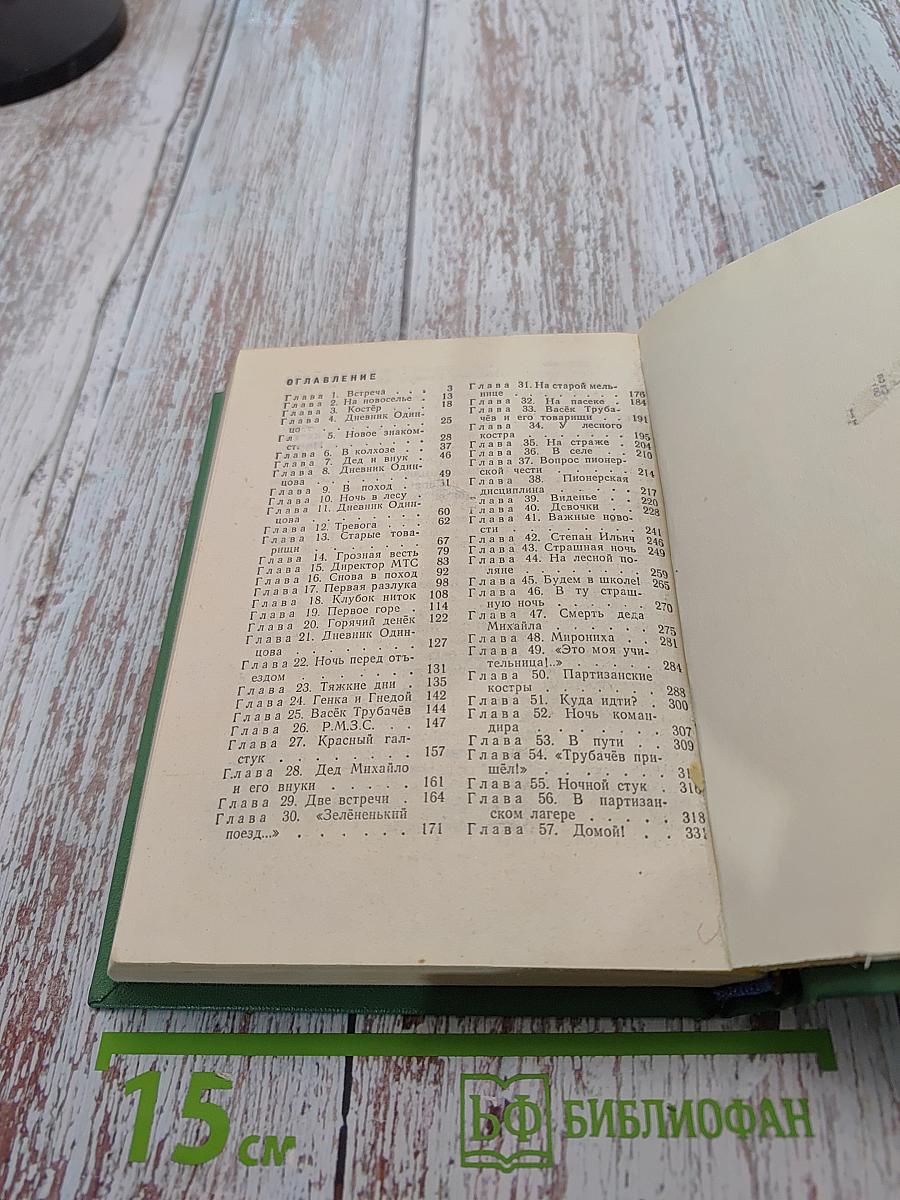 ОГЛАВЛЕНИЕ
Глава 1. Встреча . . . 3
Глава 2. На новоселье . 13
Глава 3. Костёр . . 18
Глава 4. Дневник Один-
цо . . . . . . . 25
Гл 5. Новое знаком-
ст. . . . . . . 28
Глава 6. В колхозе . . 37
Глава 7. Дед и внук . 46
Глава 8. Дневник Один-
цова . . . . . . . 49
Глава 9. В поход . . 51
Глава 10. Ночь в лесу .
Глава 11. Дневник Один-
цова . . . . . . . 60
Глава 12. Тревога . . 62
Глава 13. Старые това-
рищи . . . . . . . 67
Глава 14. Грозная весть 79
Глава 15. Директор МТС 83
Глава 16. Снова в поход 92
Глава 17. Первая разлука 98
Глава 18. Клубок ниток 108
Глава 19. Первое горе . 114
Глава 20. Горячий денёк 122
Глава 21. Дневник Один-
цова . . . . . . . 127
Глава 22. Ночь перед отъ-
ездом . . . . . . 131
Глава 23. Тяжкие дни . 135
Глава 24. Генка и Гнедой 142
Глава 25. Васёк Трубачёв 144
Глава 26. Р.М.З.С. . . 147
Глава 27. Красный гал-
стук . . . . . . . 157
Глава 28. Дед Михайло
и его внуки . . . . . 161
Глава 29. Две встречи . 164
Глава 30. «Зелёненький
поезд...» . . . . . . 171
Глава 31. На старой мель-
нице . . . . . . . 176
Глава 32. На пасеке . 184
Глава 33. Васёк Труба-
чёв и его товарищи . . 191
Глава 34. У лесного
костра . . . . . . 195
Глава 35. На страже . 204
Глава 36. В селе . . 210
Глава 37. Вопрос пионер-
ской чести . . . . . 214
Глава 38. Пионерская
дисциплина . . . . . 217
Глава 39. Виденье . . 220
Глава 40. Девочки . . 228
Глава 41. Важные ново-
сти . . . . . . . 241
Глава 42. Степан Ильич 246
Глава 43. Страшная ночь 249
Глава 44. На лесной по-
ляне . . . . . . . 259
Глава 45. Будем в школе! 265
Глава 46. В ту страш-
ную ночь . . . . . 270
Глава 47. Смерть деда
Михайла . . . . . 275
Глава 48. Мирониха . . 281
Глава 49. «Это моя учи-
тельница!..» . . . . . 284
Глава 50. Партизанские
костры . . . . . . 288
Глава 51. Куда идти? . 300
Глава 52. Ночь коман-
дира . . . . . . . 307
Глава 53. В пути . . 309
Глава 54. «Трубачёв при-
шёл!» . . . . . .
Глава 55. Ночной стук . 316
Глава 56. В партизан-
ском лагере . . . . . 318
Глава 57. Домой! . . 331
15 см
БФ БИБЛИОФАН